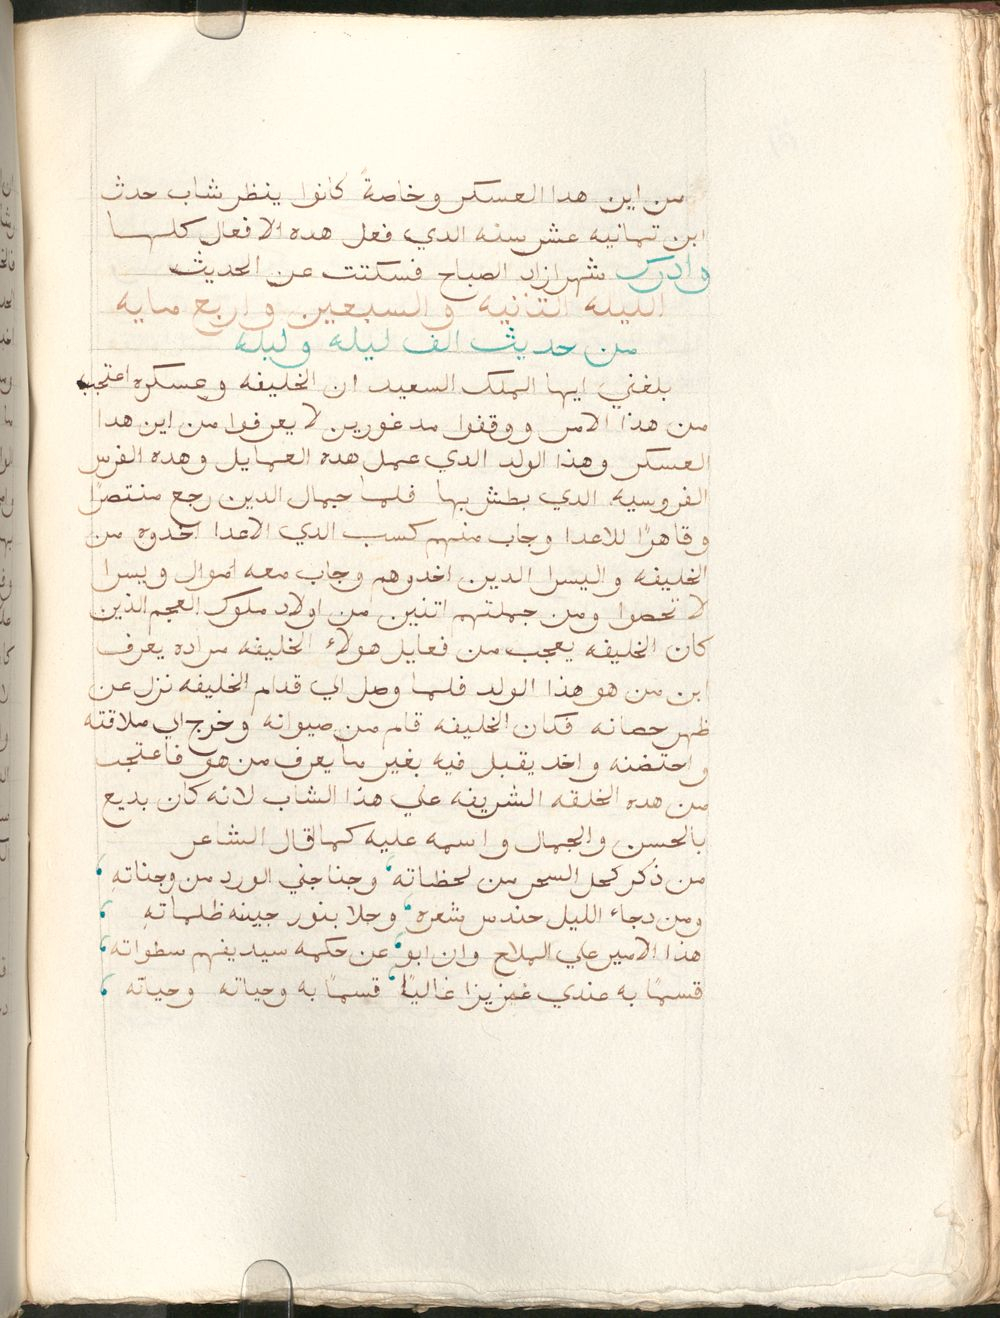 من اين هدا العسكر وخاصةً كانوا ينظر شاب حدث
ابن تمانيه عشر سنه الدي فعل هده الافعال كلها
وادرك شهرازاد الصباح فسكتت عن الحديث
الليله التانيه والسبعين واربع مايه
من حديث الف ليله وليله
بلغني ايها الملك السعيد ان الخليفه وعسكره اعتجب
من هذا الامر ووقفوا مدعورين لا يعرفوا من اين هدا
العسكر وهذا الولد الدي عمل هده العمايل وهده الفرس
الفروسيه الدي بطش بها فلما جمال الدين رجع منتصرًا
وقاهرًا للاعدا وجاب منهم كسب الدي الاعدا اخدوه من
الخليفه واليسرا الدين اخدوهم وجاب معه اموال ويسرا
لا تحصوا ومن جملتهم اتنين من اولاد ملوك العجم الذين
كان الخليفه يعجب من فعايل هولاء الخليفه مراده يعرف
ابن من هو هذا الولد فلما وصل الي قدام الخليفه نزل عن
ظهر حصانه فكان الخليفه قام من صيوانه وخرج الي ملاقته
واحتضنه واخد يقبل فيه بغير ما يعرف من هو فاعتجب
من هده الخلقه الشريفه علي هذا الشاب لانه كان بديع
بالحسن والجمال واسمه عليه كما قال الشاعر
من ذكر كحل السحر من لحظاته وجنا جني الورد من وجناتهِ
ومن دجاء الليل حندس شعره وجلا بنور جبينه ظلماتهِ
هذا الامير علي الملاح وان ابو عن حكمه سيد يفهم سطواته
قسمًا به عندي عزيزا غاليًا قسمًا به وحياته وحياته